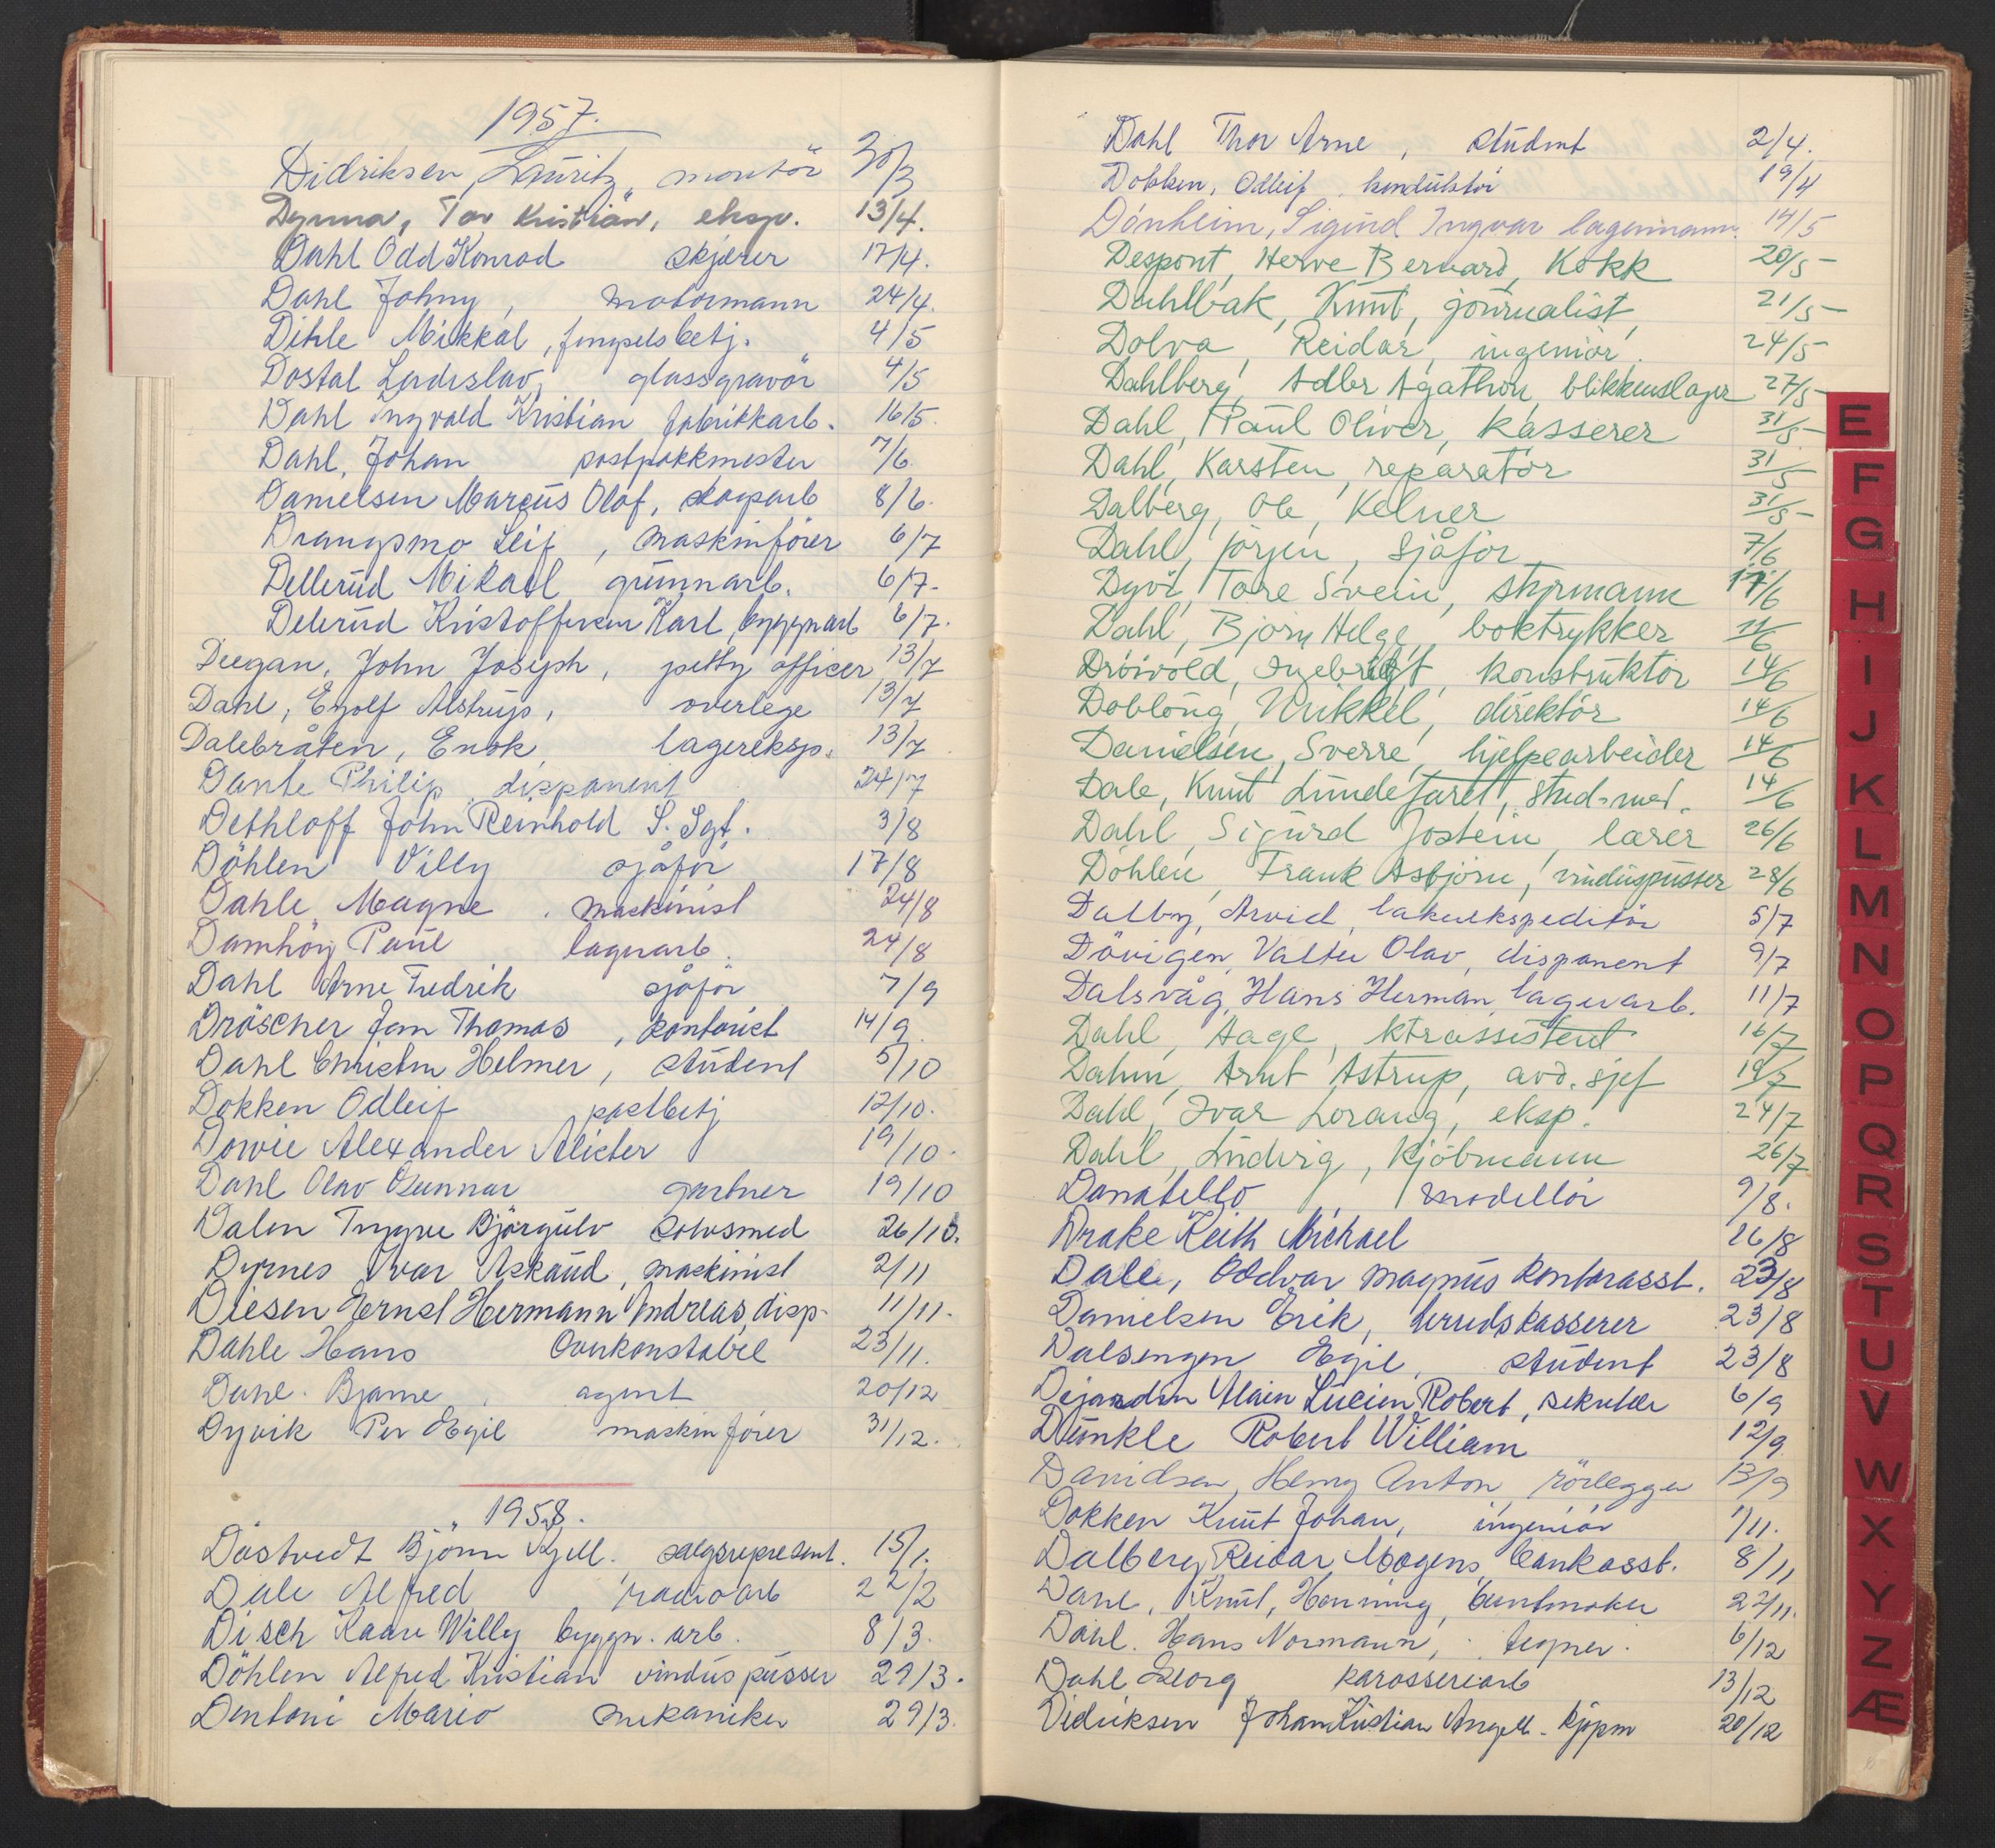 1957.
Didriksen, Lauritz, montör 30/3
Dynna, Tor Kristian, eksp. 13/4.
Dahl Odd Konrad skjærer 17/4.
Dahl Johny, motormann 24/4.
Dihle Mikkal, fengselsbetj. 4/5
Dostal Ladislav, glassgravör 4/5
Dahl Ingvald Kristian fabrikkarb. 16/5.
Dahl, Johan postpakkmester 7/6
Danielsen Marcus Olaf, skogarb 8/6.
Drangsmo Leif, maskinförer 6/7
Dellerud Mikael grunnarb. 6/7.
Delerud Kristoffersen Karl, byggnarb 6/7.
Deegan, John Joseph, petty officer 13/7
Dahl, Eyolf Alstrup, overlege 13/7
Dalebråten, Enok, lagereksp. 13/7
Dante Philip disponent 24/7
Dethloff John Reinhold S. Sgt. 3/8
Döhlen Villy sjåför 17/8
Dahle Magne, maskinist 24/8
Damhöig Paul lagerarb. 24/8
Dahl Arne Fredrik sjåför 7/9
Dröscher Jan Thomas, kontorist 14/9
Dahl Christen Helmer, student 5/10
Dokken Odleif postbetj 12/10.
Dowie Alexander Alister 19/10.
Dahl Olav Gunnar gartner 19/10
Dalen Trygve Björgulv rörsmed 26/10.
Dyrnes Ivar Askaud, maskinist 2/11
Diesen Ernst Hermann Andreas, disp. 11/11.
Dahle Hans Overkonstabel 23/11.
Dahl. Bjarne, agent 20/12
Dyvik Per Egil maskinförer 31/12.
1958.
Dåstvedt Björn Kjell. salgsrepresent. 15/1.
Dale Alfred radioarb 22/2
Disch Kaare Willy byggn. arb. 8/3.
Döhlen Alfred Kristian vinduspusser 29/3.
Dentoni Mario mekaniker 29/3.
Dahl Thor Arne, student 2/4.
Dokken, Odleif, konduktör 19/4
Dönheim, Sigurd Ingvar lagermann. 14/5
Despont, Herve Bernard, Kokk 20/5
Dahlbak, Knut, journalist, 21/5
Dolva, Reidar, ingeniör. 24/5
Dahlberg, Adler Agathon, blikkenslager 27/5
Dahl, Paul Oliver, kasserer 31/5
Dahl, Karsten, reparatör 31/5
Dalberg, Ole, Kelner 31/5
Dahl, Jörgen, sjåför 7/6
Dyvi, Tore Svein, styrmann 11/6
Dahl, Björn Helge, boktrykker 11/6
Dröivold, Ingebrigt, konstruktör 14/6
Doblong, Mikkel, direktör 14/6
Danielsen, Sverre, hjelpearbeider 14/6
Dale, Knut Lundefaret, stud. med. 14/6
Dahl, Sigurd Jostein, lærer 26/6
Döhlen, Frank Asbjörn, vinduspusser 28/6
Dalby, Arvid, lakerekspeditör 5/7
Dövigen, Valter Olav, disponent 9/7
Dalsvåg, Hans Herman, lagerarb. 11/7
Dahl, Aage, ktrassistent 16/7
Dahm, Arnt Astrup, avd. sjef 19/7
Dahl, Ivar Lorang, eksp. 24/7
Dahl, Ludvig, Kjöbmann 26/7
Donatello, modellör 9/8.
Drake Keith Michael 16/8
Dale, Oddvar Magnus Kontorasst. 23/8
Danielsen Erik, herredskasserer 23/8
Dalsengen Egil, student 23/8
Dejardin Alain Lucien Robert, sekretær 6/9
Dunkle Robert William 12/9.
Davidsen, Henry Anton, rörlegger 13/9
Dokken Knut Johan, ingeniör 1/11.
Dalberg Reidar Mogens, bankasst. 8/11
Dahl, Knut, Henning, buntmaker 22/11.
Dahl. Hans Normann, tegner. 6/12
Dahl Georg karosseriarb 13/12
Didriksen Johan Kristian Angell. kjøpm 20/12
E
F
G
H
I
J
K
L
M
N
O
P
Q
R
S
T
U
V
W
X
Y
Z
Æ